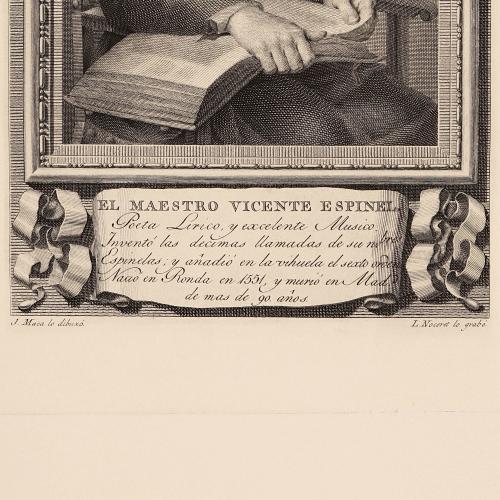 EL MAESTRO VICENTE ESPINEL
Poeta Lirico, y excelente Musico,
Inventó las decimas llamadas de su nombre
Espinelas; y añadió en la vihuela el sexto orden
Nacio en Ronda en 1551, y murió en Mad.d
de mas de 90 años.
J. Maea lo dibuxó.
L. Noceret lo grabó